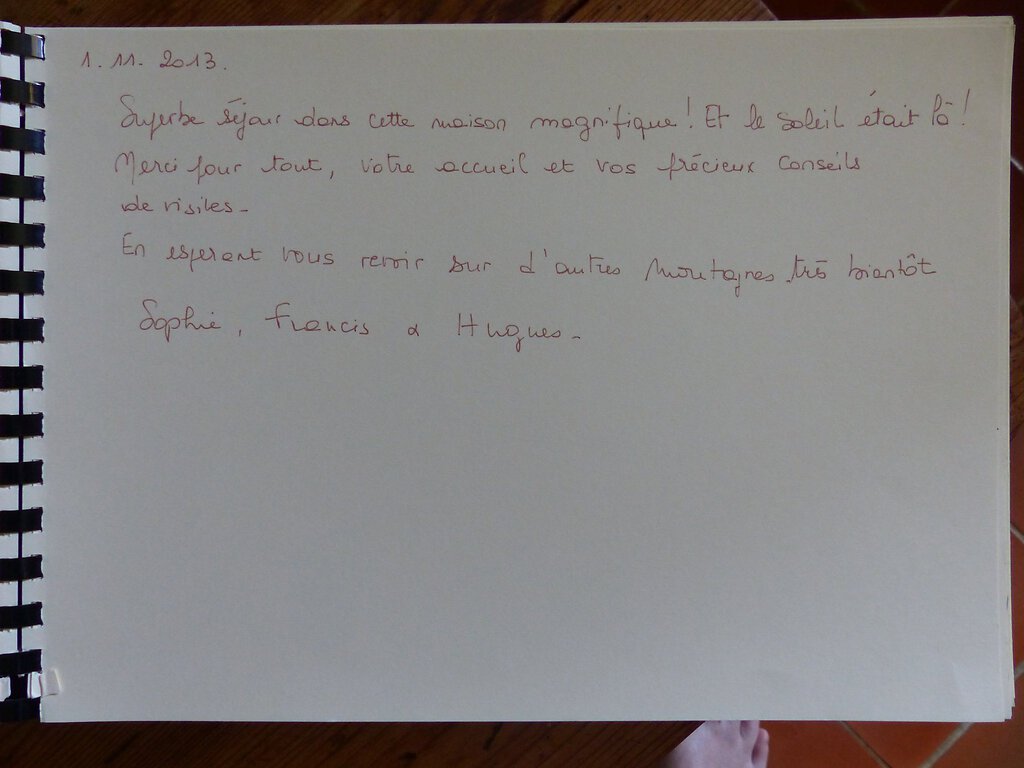 1. 11. 2013.
Superbe séjour dans cette maison magnifique ! Et le soleil était là !
Merci pour tout, votre accueil et vos précieux conseils
de visites -
En esperant vous revoir sur d'autres montagnes très bientôt
Sophie, Francis & Hugues -